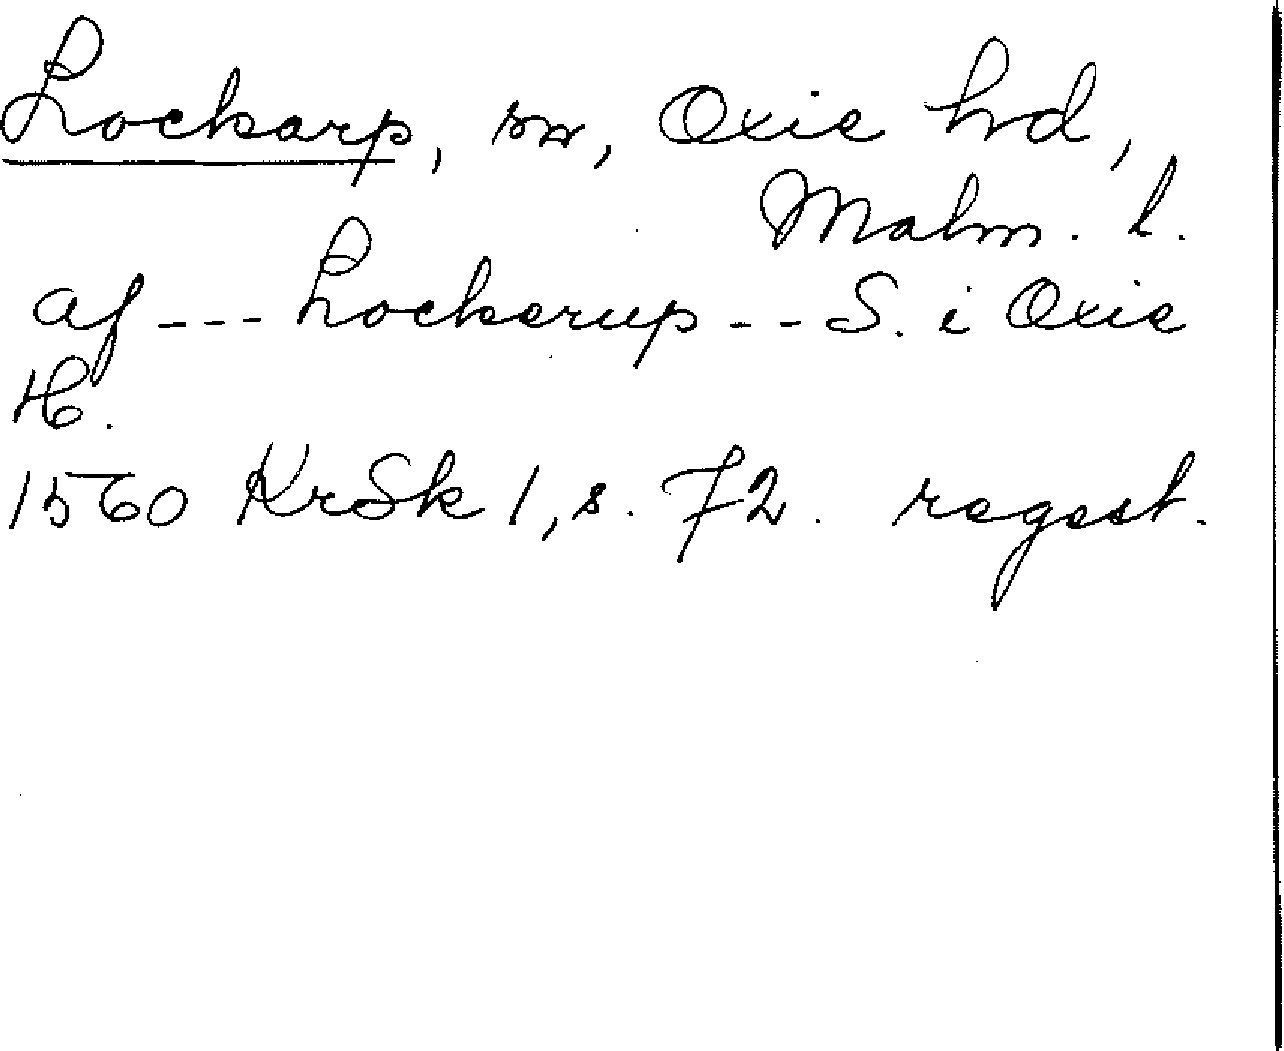 Lockarp, sn, Oxie hd,
Malm. l.
af --- Lockerup -- S. i Oxie
H.
1560 KrSk 1, s. 72. regest.